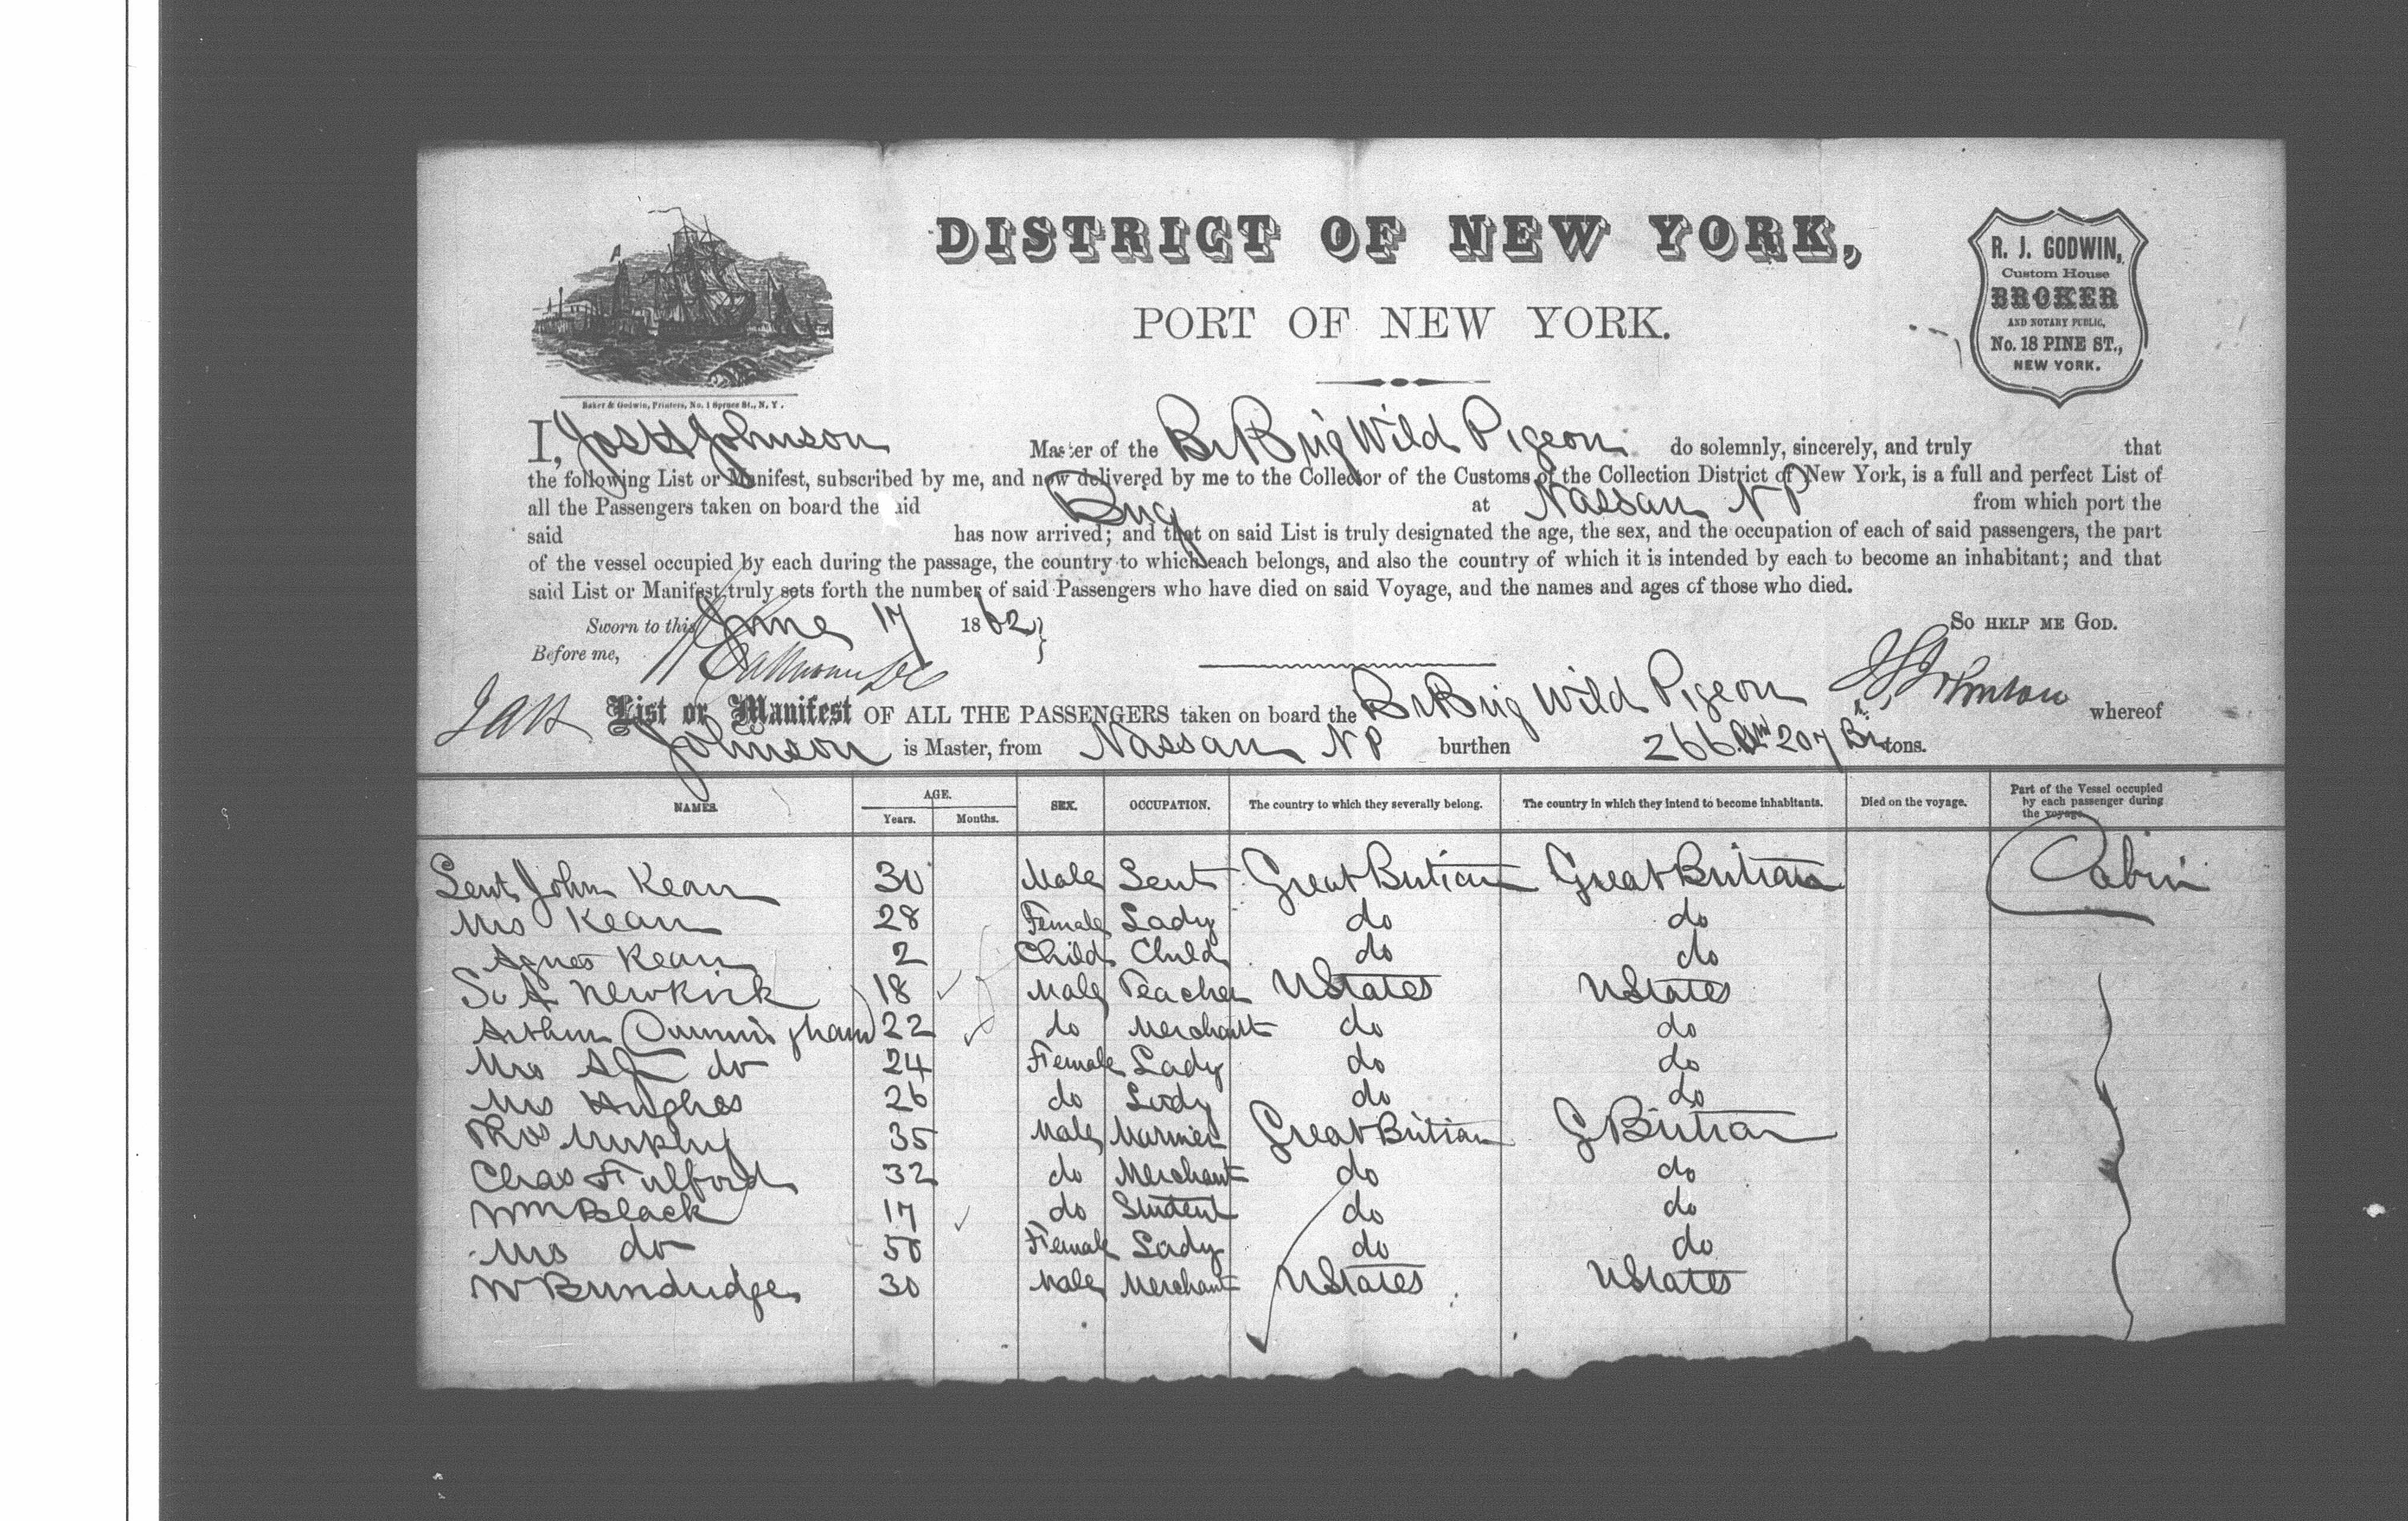 DISTRICT OF NEW YORK,
PORT OF NEW YORK.
R. J. GODWIN,
Custom House
BROKER
AND NOTARY PUBLIC,
No. 18 PINE ST.,
NEW YORK.
Baker & Godwin, Printers, No. 1 Spruce St., N. Y.
I, Johnson Master of the Br Brig Wild Pigeon do solemnly, sincerely, and truly that
the following List or Manifest, subscribed by me, and now delivered by me to the Collector of the Customs of the Collection District of New York, is a full and perfect List of
all the Passengers taken on board the aid Brig at Nassau N P from which port the
said has now arrived; and that on said List is truly designated the age, the sex, and the occupation of each of said passengers, the part
of the vessel occupied by each during the passage, the country to which each belongs, and also the country of which it is intended by each to become an inhabitant; and that
said List or Manifest truly sets forth the number of said Passengers who have died on said Voyage, and the names and ages of those who died.
Sworn to this June 17 1862 So HELP ME GOD.
Before me,
Johnson
List or Manifest OF ALL THE PASSENGERS taken on board the Br Brig Wild Pigeon whereof
Johnson is Master, from Nassau N P burthen 266 Am 207 Br tons.
NAMES. AGE. Years. Months. SEX. OCCUPATION. The country to which they severally belong. The country in which they intend to become inhabitants. Died on the voyage. Part of the Vessel occupied by each passenger during the voyage.
John Kean 30 Male Great Britian Great Britian Cabin
Mrs Kean 28 Female Lady do do
Agnes Kean 2 Child Child do do
S. A Newkirk 18 Male Teacher UStates UStates
Arthur Cunningham 22 do Merchant do do
Mrs do 24 Female Lady do do
Mrs Hughes 26 do Lady do do
Thos Murphy 35 Male Mariner Great Britian G Britian
Chas Fulford 32 do Merchant do do
Wm Black 17 do Student do do
Mrs do 50 Female Lady do do
W Bundudge 30 Male Merchant UStates UStates